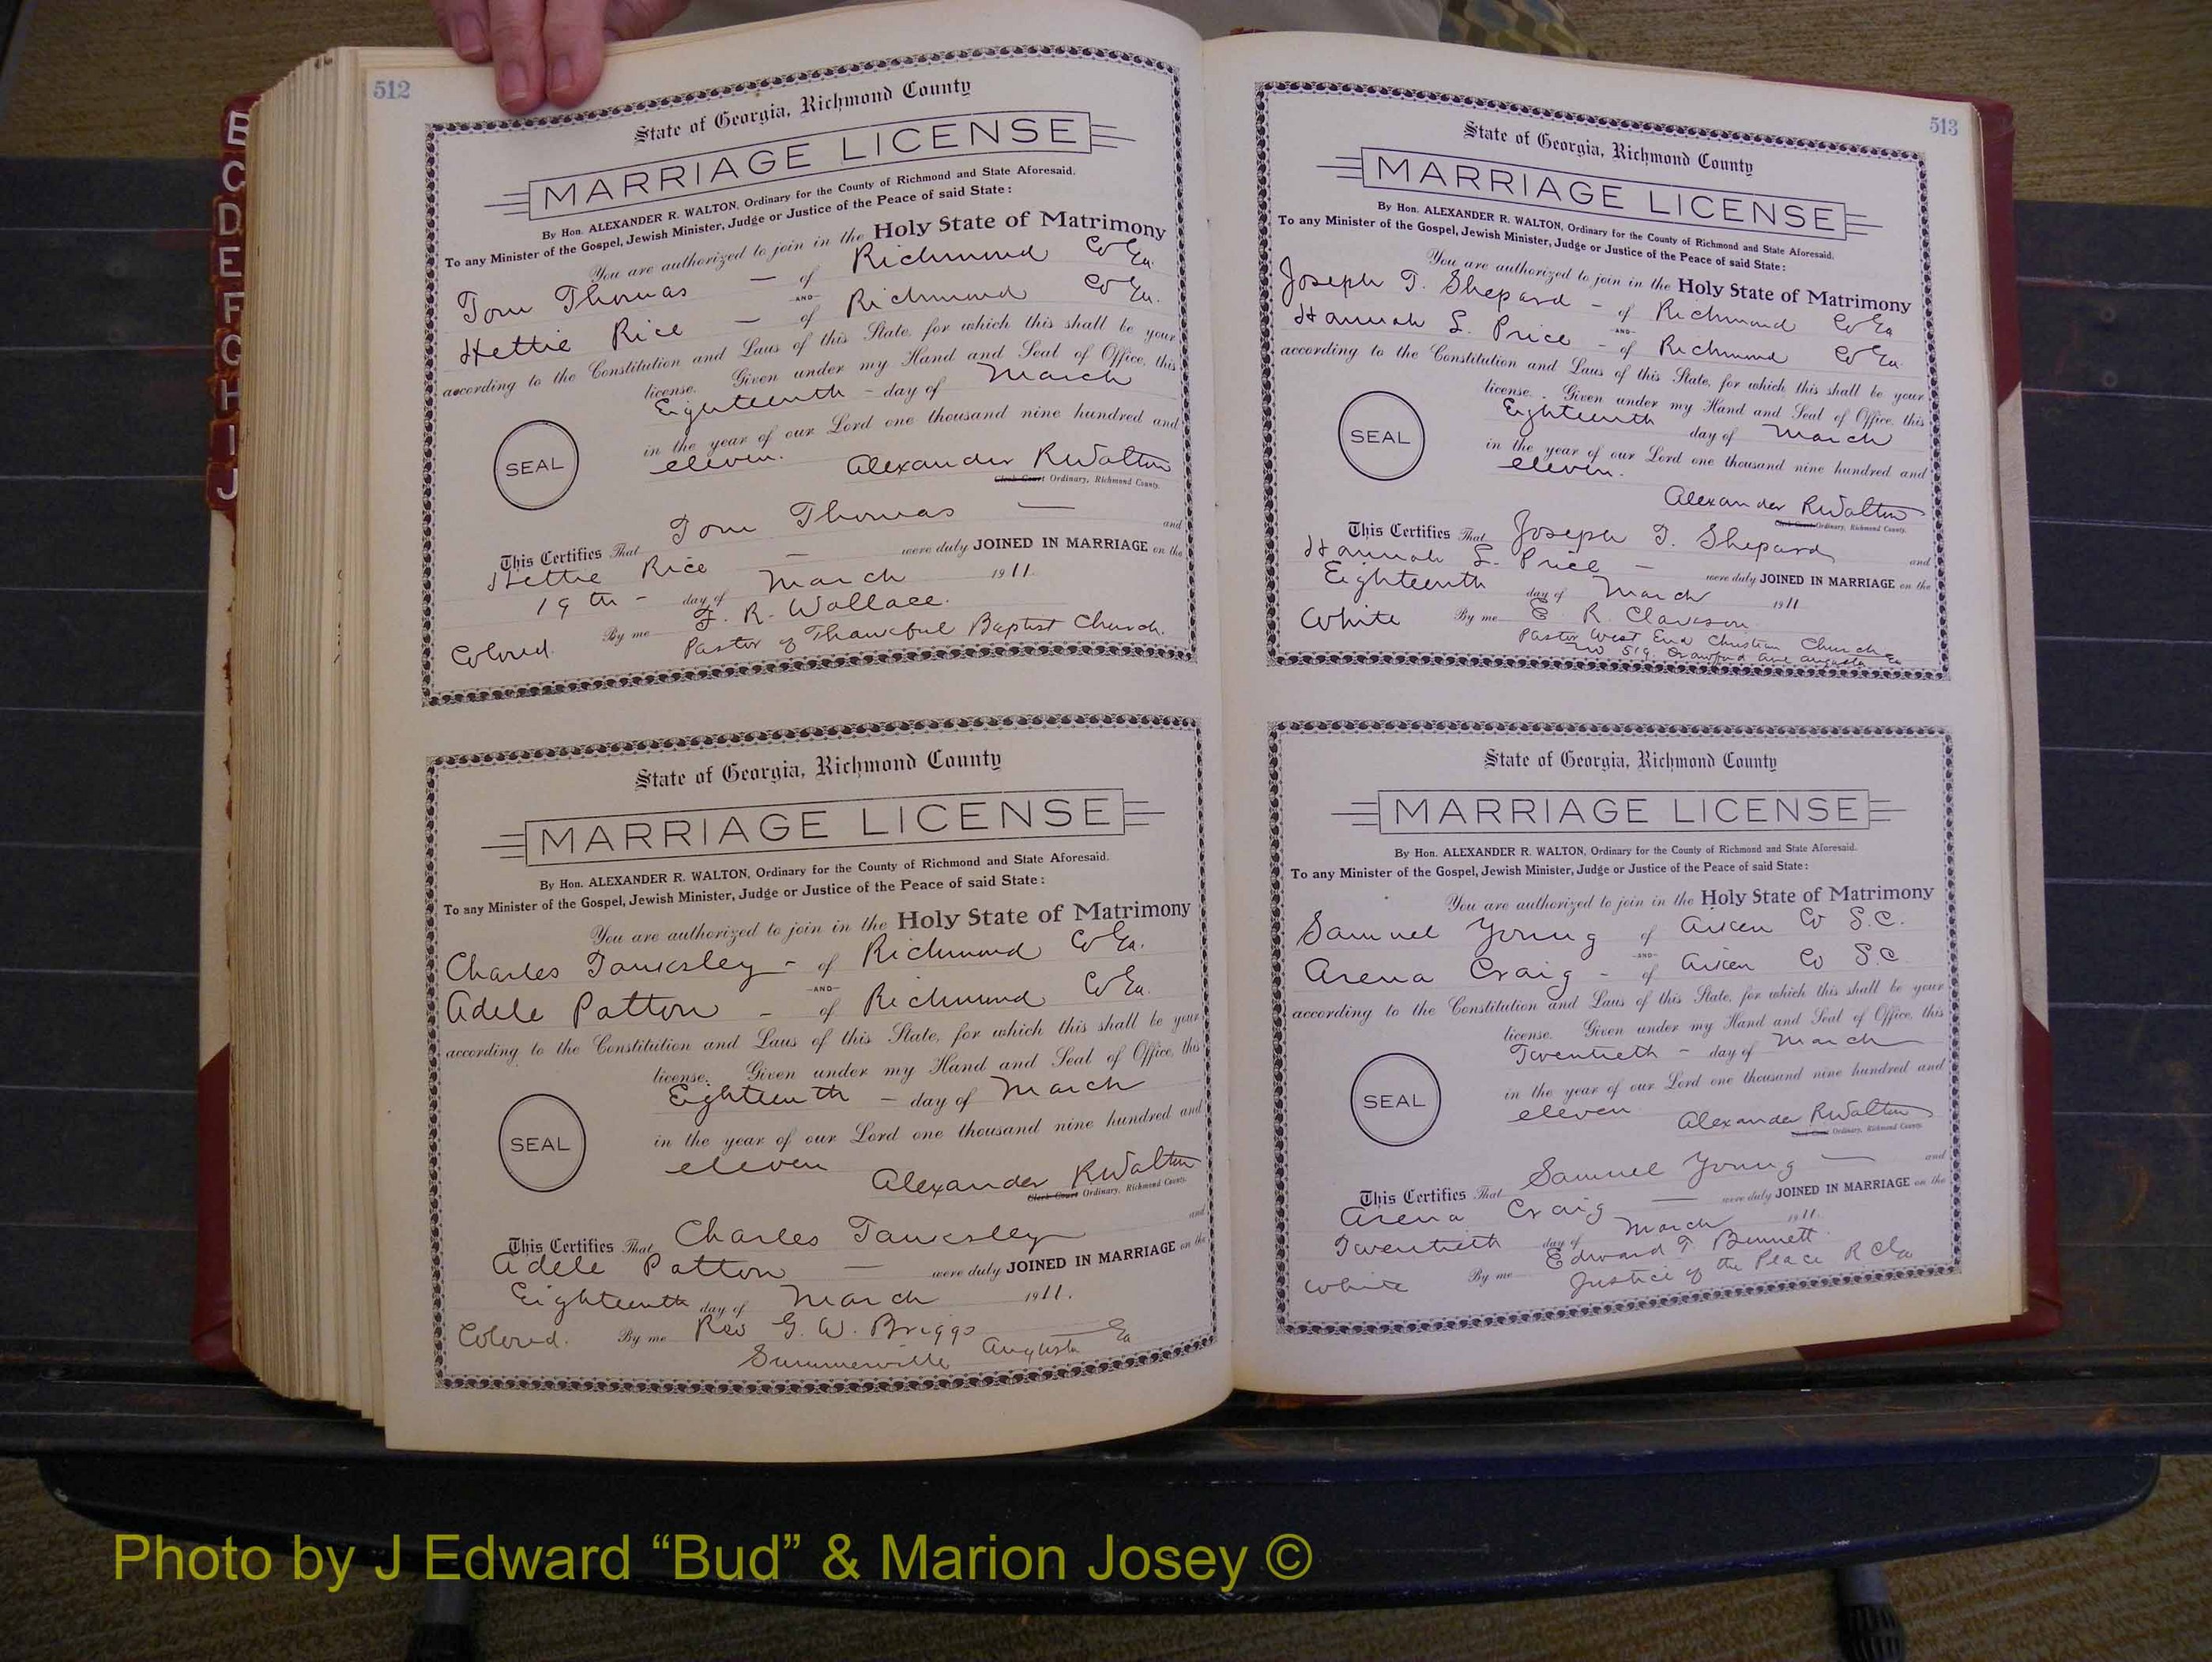 B
C
D
E
F
G
H
I
J
512
State of Georgia, Richmond County
MARRIAGE LICENSE
By Hon. ALEXANDER R. WALTON, Ordinary for the County of Richmond and State Aforesaid.
To any Minister of the Gospel, Jewish Minister, Judge or Justice of the Peace of said State:
You are authorized to join in the Holy State of Matrimony
Tom Thomas — of Richmond Co Ga.
AND
Hettie Rice — of Richmond Co Ga.
according to the Constitution and Laws of this State, for which this shall be your
license. Given under my Hand and Seal of Office, this
Eighteenth - day of March
in the year of our Lord one thousand nine hundred and
SEAL
eleven. Alexander R Walton
Clerk Court Ordinary, Richmond County.
This Certifies That Tom Thomas — and
Hettie Rice — were duly JOINED IN MARRIAGE on the
19th - day of March 1911.
By me F. R. Wallace.
Colored. Pastor of Thankful Baptist Church.
State of Georgia, Richmond County
MARRIAGE LICENSE
By Hon. ALEXANDER R. WALTON, Ordinary for the County of Richmond and State Aforesaid.
To any Minister of the Gospel, Jewish Minister, Judge or Justice of the Peace of said State:
You are authorized to join in the Holy State of Matrimony
Charles Tanksley - of Richmond Co Ga.
AND
Adele Patton - of Richmond Co Ga.
according to the Constitution and Laws of this State, for which this shall be your
license. Given under my Hand and Seal of Office, this
Eighteenth - day of March
in the year of our Lord one thousand nine hundred and
SEAL
eleven Alexander R Walton
Clerk Court Ordinary, Richmond County.
This Certifies That Charles Tanksley and
Adele Patton — were duly JOINED IN MARRIAGE on the
Eighteenth day of March 1911.
Colored. By me Rev G. W. Briggs
Summerville Augusta Ga
513
State of Georgia, Richmond County
MARRIAGE LICENSE
By Hon. ALEXANDER R. WALTON, Ordinary for the County of Richmond and State Aforesaid.
To any Minister of the Gospel, Jewish Minister, Judge or Justice of the Peace of said State:
You are authorized to join in the Holy State of Matrimony
Joseph T. Shepard - of Richmond Co Ga
AND
Hannah L. Price - of Richmond Co Ga.
according to the Constitution and Laws of this State, for which this shall be your
license. Given under my Hand and Seal of Office, this
Eighteenth day of March
in the year of our Lord one thousand nine hundred and
SEAL
eleven.
Alexander R Walton
Clerk Court Ordinary, Richmond County.
This Certifies That Joseph T. Shepard and
Hannah L. Price - were duly JOINED IN MARRIAGE on the
Eighteenth day of March 1911
White By me E R. Clarkson
Pastor West End Christian Church
519 Crawford Ave Augusta Ga
State of Georgia, Richmond County
MARRIAGE LICENSE
By Hon. ALEXANDER R. WALTON, Ordinary for the County of Richmond and State Aforesaid.
To any Minister of the Gospel, Jewish Minister, Judge or Justice of the Peace of said State:
You are authorized to join in the Holy State of Matrimony
Samuel Young of Aiken Co S.C.
AND
Arena Craig - of Aiken Co S.C
according to the Constitution and Laws of this State, for which this shall be your
license. Given under my Hand and Seal of Office, this
Twentieth - day of March
in the year of our Lord one thousand nine hundred and
SEAL
eleven Alexander R Walton
Clerk Court Ordinary, Richmond County.
This Certifies That Samuel Young — and
Arena Craig — were duly JOINED IN MARRIAGE on the
Twentieth day of March 1911.
By me Edward T. Bennett
White Justice of the Peace R C Ga
Photo by J Edward “Bud” & Marion Josey ©